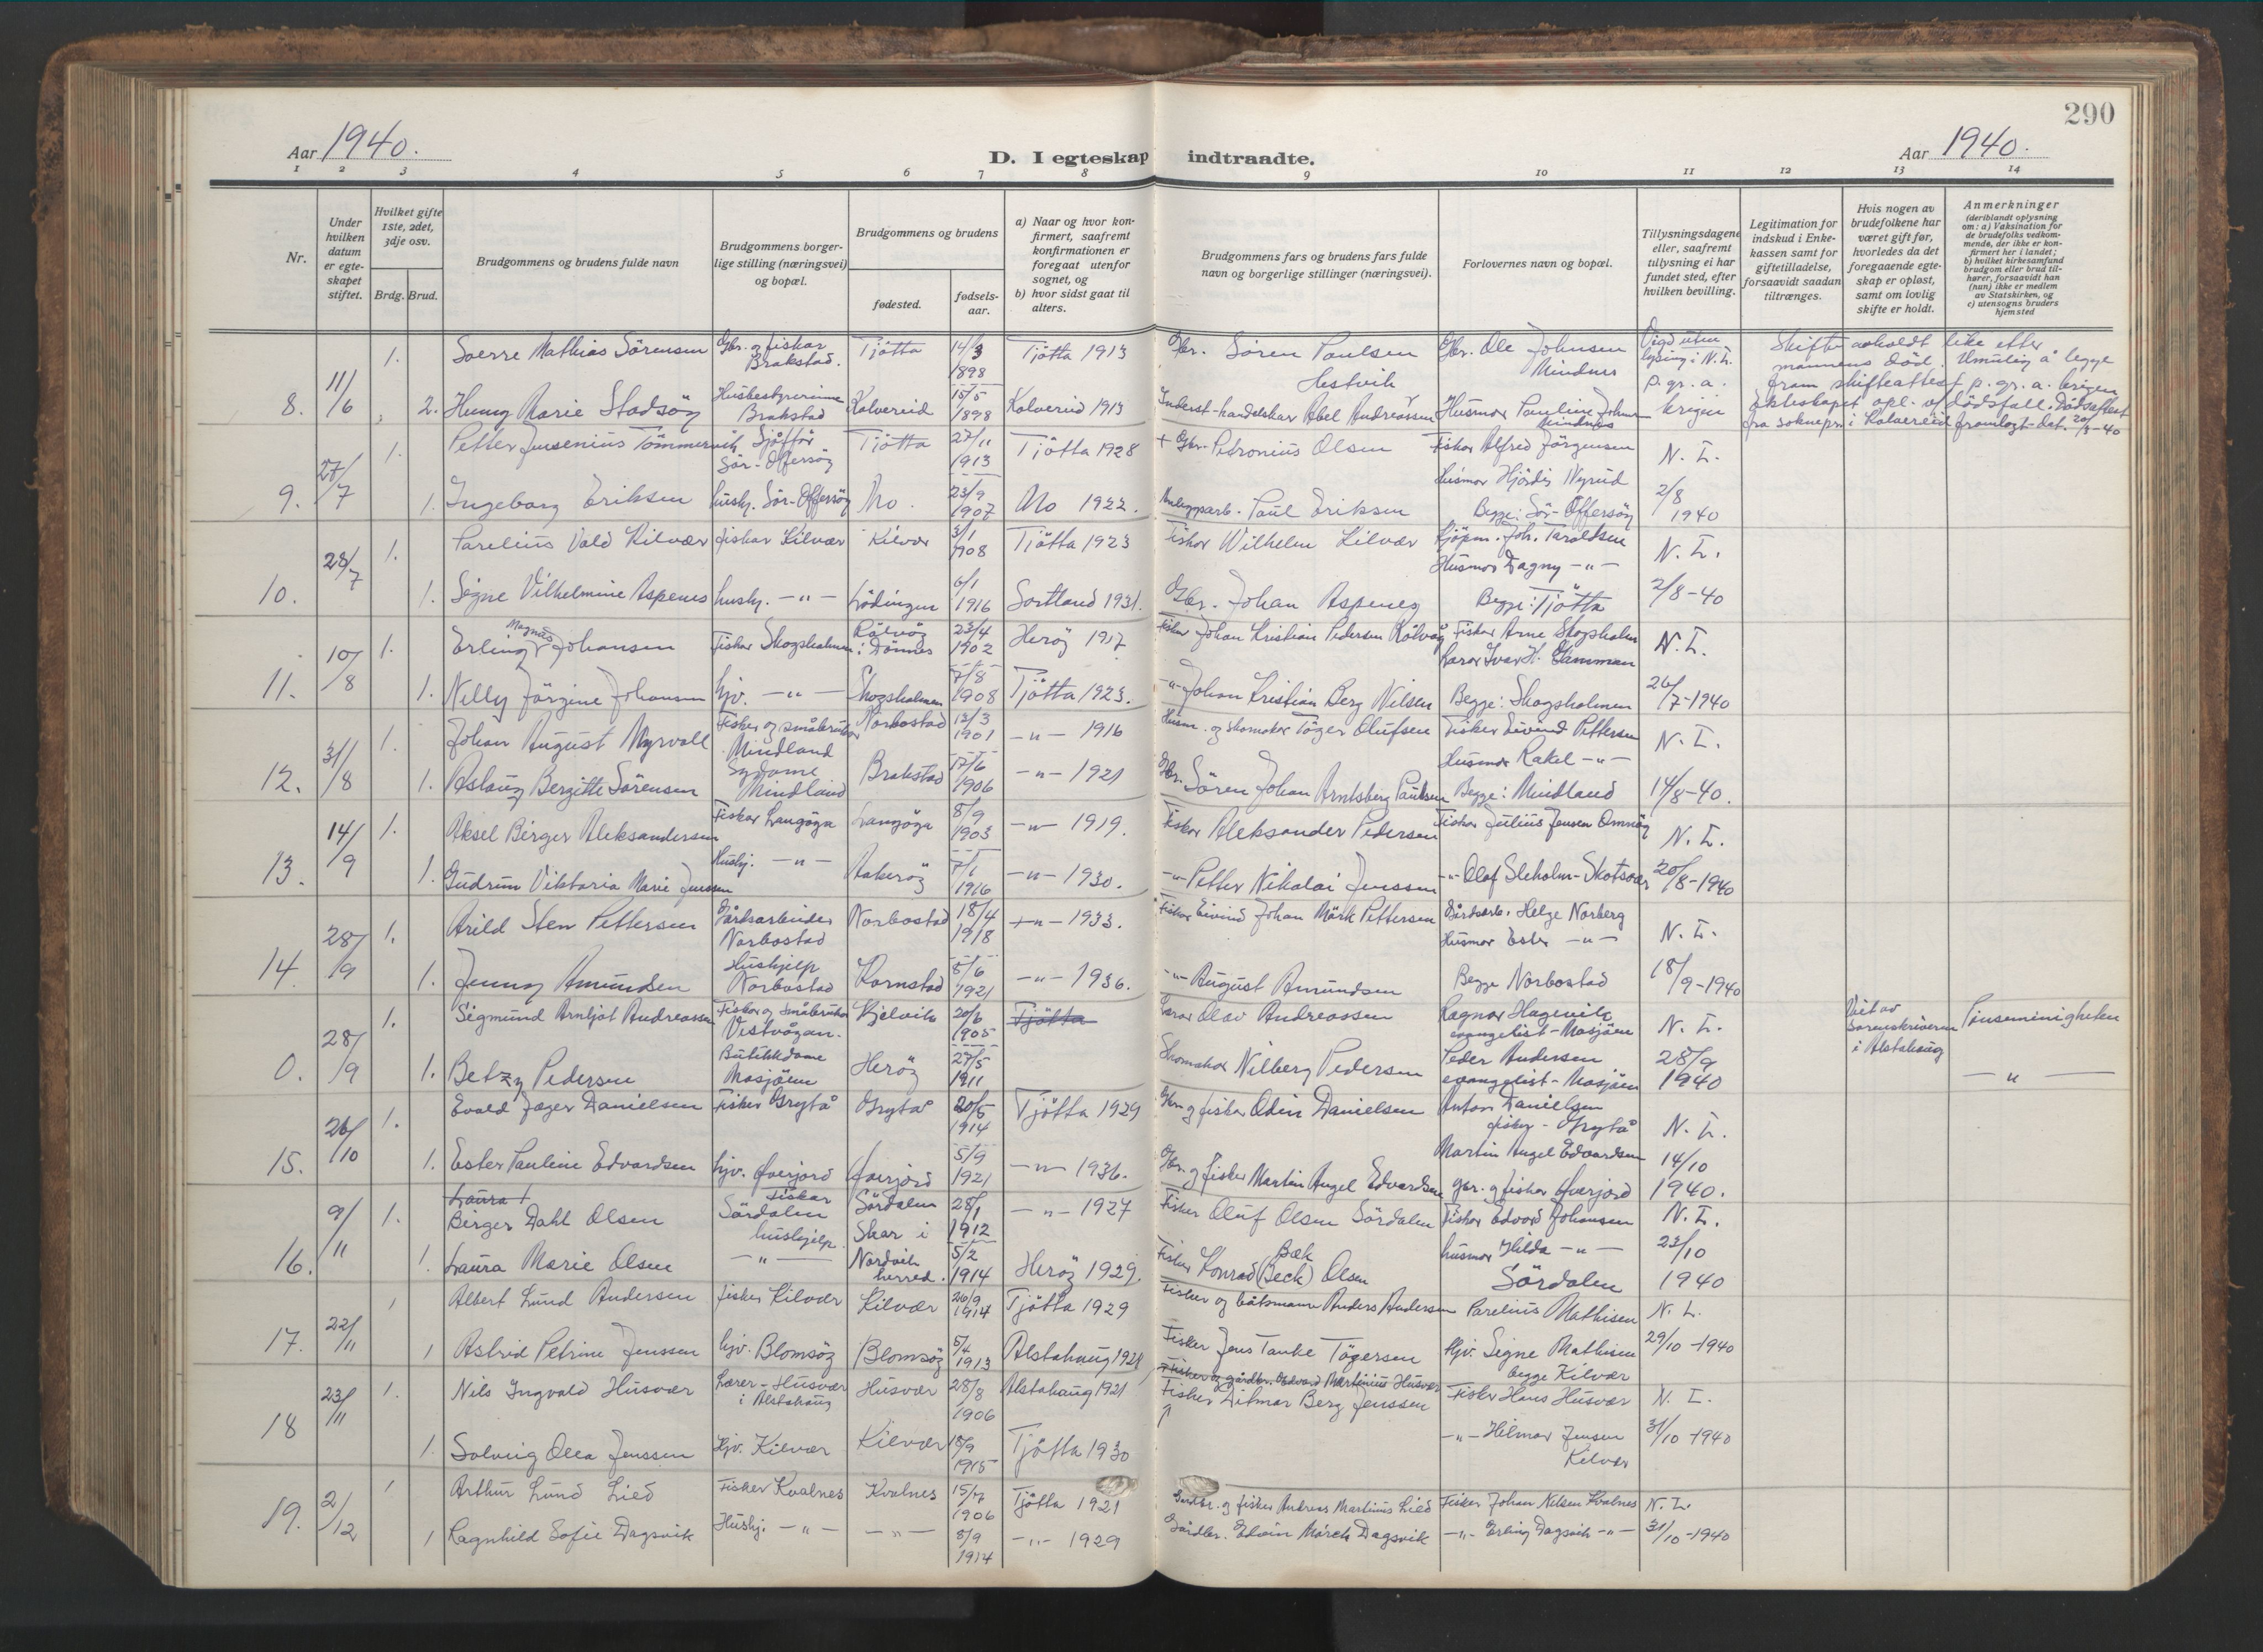 290
Aar 1940.
D. I egteskap indtraadte.
Aar 1940.
1 2 3 4 5 6 7 8 9 10 11 12 13 14
Nr.
Under hvilken datum er egteskapet stiftet.
Hvilket gifte 1ste, 2det, 3dje osv.
Brdg. Brud.
Brudgommens og brudens fulde navn
Brudgommens borgerlige stilling (næringsvei) og bopæl.
Brudgommens og brudens
fødested.
fødselsaar.
a) Naar og hvor konfirmert, saafremt konfirmationen er foregaat utenfor sognet, og
b) hvor sidst gaat til alters.
Brudgommens fars og brudens fars fulde navn og borgerlige stillinger (næringsvei).
Forlovernes navn og bopæl.
Tillysningsdagene eller, saafremt tillysning ei har fundet sted, efter hvilken bevilling.
Legitimation for indskud i Enkekassen samt for giftetilladelse, forsaavidt saadan tiltrænges.
Hvis nogen av brudefolkene har været gift før, hvorledes da det foregaaende egteskap er opløst, samt om lovlig skifte er holdt.
Anmerkninger
(deriblandt oplysning om: a) Vaksination for de brudefolks vedkommende, der ikke er konfirmert her i landet; b) hvilket kirkesamfund brudgom eller brud tilhører, forsaavidt han (hun) ikke er medlem av Statskirken, og c) utensogns bruders hjemsted
8. 11/6
1. Sverre Mathias Sörensen Gbr. og fisker Brakstad. Tjötta 14/3 1898 Tjötta 1913 Gbr. Sören Paulsen Hestvik Gbr. Ole Johnsen Mindnes Vigd uten lysing i N.L. p.gr.a. krigen
2. Marie Stadsöy Husbestyrerinne Brakstad Kolvereid 15/5 1898 Kolvereid 1913 Abel Andreassen Husmor Pauline Johnsen Mindnes
Skifte avholdt like etter mannens död. Umulig å legge fram skifteattest p.gr.a. krigen
Ekteskapet opl. af dödsfall. Dödsattest fra soknepr. i Kolvereid framlagt dat. 20/3-40
9. 27/7
1. Petter Jensenius Tömmervik Sör-Offersöy Tjötta 27/11 1913 Tjötta 1928 + Gbr. Petronius Olsen Fisker Alfred Jörgensen N. L.
1. Ingeborg Eriksen hushj. Sör-Offersöy Mo. 23/9 1907 Mo 1922. Anleggsarb. Paul Eriksen Husmor Hjördis Nyrud Begge: Sör-Offersöy 2/8 1940
10. 28/7
1. Parelius Vold Kilvær fisker Kilvær Kilvær 3/1 1908 Tjötta 1923 Fisker Wilhelm Kilvær Kjöpm. Joh. Taraldsen N. L.
1. Signe Vilhelmine Aspenes hushj. -"- Lödingen 6/1 1916 Sortland 1931. Gbr. Johan Aspenes Husmor Dagny -"- Begge: Tjötta 2/8-40
11. 10/8
1. Erling Magnus Johansen Fisker Skogsholmen Rölvåg i Dönnes 23/4 1902 Heröy 1917 Fisker Johan Kristian Pedersen Rölvåg Fisker Arne Skogsholm N. L.
1. Nelly Jörgine Johansen hjv. -"- Skogsholmen 7/8 1908 Tjötta 1923. -"- Johan Kristian Berg Nilsen Lærer Ivar H. Gamman Begge: Skogsholmen 26/7-1940
12. 31/8
1. Johan August Myrvoll Fisker og småbruker Mindland Norbostad 13/3 1901 -"- 1916 Husm. og skomaker Töger Olufsen Fisker Eivind Pettersen N. L.
1. Aslaug Bergitte Sörensen Sydame Mindland Brakstad 17/6 1906 -"- 1921 Gbr. Sören Johan Arntsberg Paulsen Husmor Rakel -"- Begge: Mindland 14/8-40.
13. 14/9
1. Aksel Birger Aleksandersen Fisker Langöya Langöya 8/9 1903 -"- 1919. Fisker Aleksander Pedersen Fisker Julius Jensen Omnöy N. L.
1. Gudrun Viktoria Marie Jenssen Hushj. -"- Aakeröy 7/1 1916 -"- 1930. -"- Petter Nikolai Jenssen -"- Olaf Sleholm-Skotsvær 20/8-1940
14. 28/9
1. Arild Sten Pettersen Gårdsarbeider Norbostad Norbostad 18/4 1918 -"- 1933. Fisker Eivind Johan Mörk Pettersen Gårdsarb. Helge Norberg N. L.
1. Jenny Amundsen Hushjelp Norbostad Kornstad 8/6 1921 -"- 1936. -"- August Amundsen Husmor Ester -"- Begge Norbostad 18/9-1940
0. 28/9
1. Sigmund Arntjot Andreassen Fisker og småbruker Vistvågan. Kjelvik 20/6 1905 Tjötta Lærer Olav Andreassen Ragnar Hagevik evangelist-Mosjöen N. L. Viet av sorenskriveren i Alstahaug Pinsemenigheten
1. Betzy Pedersen Butikkdame Mosjöen Heröy 27/5 1911 Skomaker Nilberg Pedersen Peder Andersen evangelist-Mosjöen 28/9 1940 -"-
15. 26/10
1. Evald Jæger Danielsen Fisker Grytå Grytå 20/5 1914 Tjötta 1929 Gbr. og fisker Odin Danielsen Anton Danielsen fisker - Grytå N. L.
1. Ester Pauline Edvardsen hjv. 5/9 1921 -"- 1936. Gbr. og fisker Martin Angel Edvardsen Martin Angel Edvardsen gbr. og fisker 14/10 1940.
16. 9/11
Laura
1. Birger Dahl Olsen Fisker Sördalen Sördalen 28/1 1912 -"- 1927 Fisker Oluf Olsen Sördalen Fisker Edvard Johansen N. L.
1. Laura Marie Olsen hushjelp -"- Skar i Nordvik herred. 5/2 1914 Heröy 1929. Fisker Konrad Bæk (Beck) Olsen husmor Hilda -"- Sördalen 23/10 1940
17. 22/11
1 Albert Lund Andersen fisker Kilvær Kilvær 26/9 1914 Tjötta 1929 Fisker og båtsmann Anders Andersen Parelius Mathisen N. L.
1 Astrid Petrine Jenssen hjv. Blomsöy Blomsöy 5/4 1913 Alstahaug 1928 Fisker Jens Tanke Tögersen hjv. Signe Mathisen begge Kilvær 29/10-1940
18 23/11
1. Nils Ingvald Husvær Lærer-Husvær i Alstahaug Husvær 28/8 1906 Alstahaug 1921 Fisker og gårdbr. Edvard Martinius Husvær Fisker Hans Husvær N. L.
1. Solveig Olea Jenssen Hjv. Kilvær Kilvær 18/9 1915 Tjötta 1930 Fisker Ditmar Berg Jenssen -"- Hilmar Jensen Kilvær 31/10-1940
19. 2/12
1 Arthur Lund Lied Fisker Kvalnes Kvalnes 15/7 1906 Tjötta 1921 Gårdbr. og fisker Andreas Martinus Lied Fisker Johan Nilsen Kvalnes N. L.
1 Ragnhild Sofie Dagsvik Hushj. -"- -"- 8/9 1914 -"- 1929 Gårdbr. Edvin Mörch Dagsvik -"- Erling Dagsvik -"- 31/10-1940